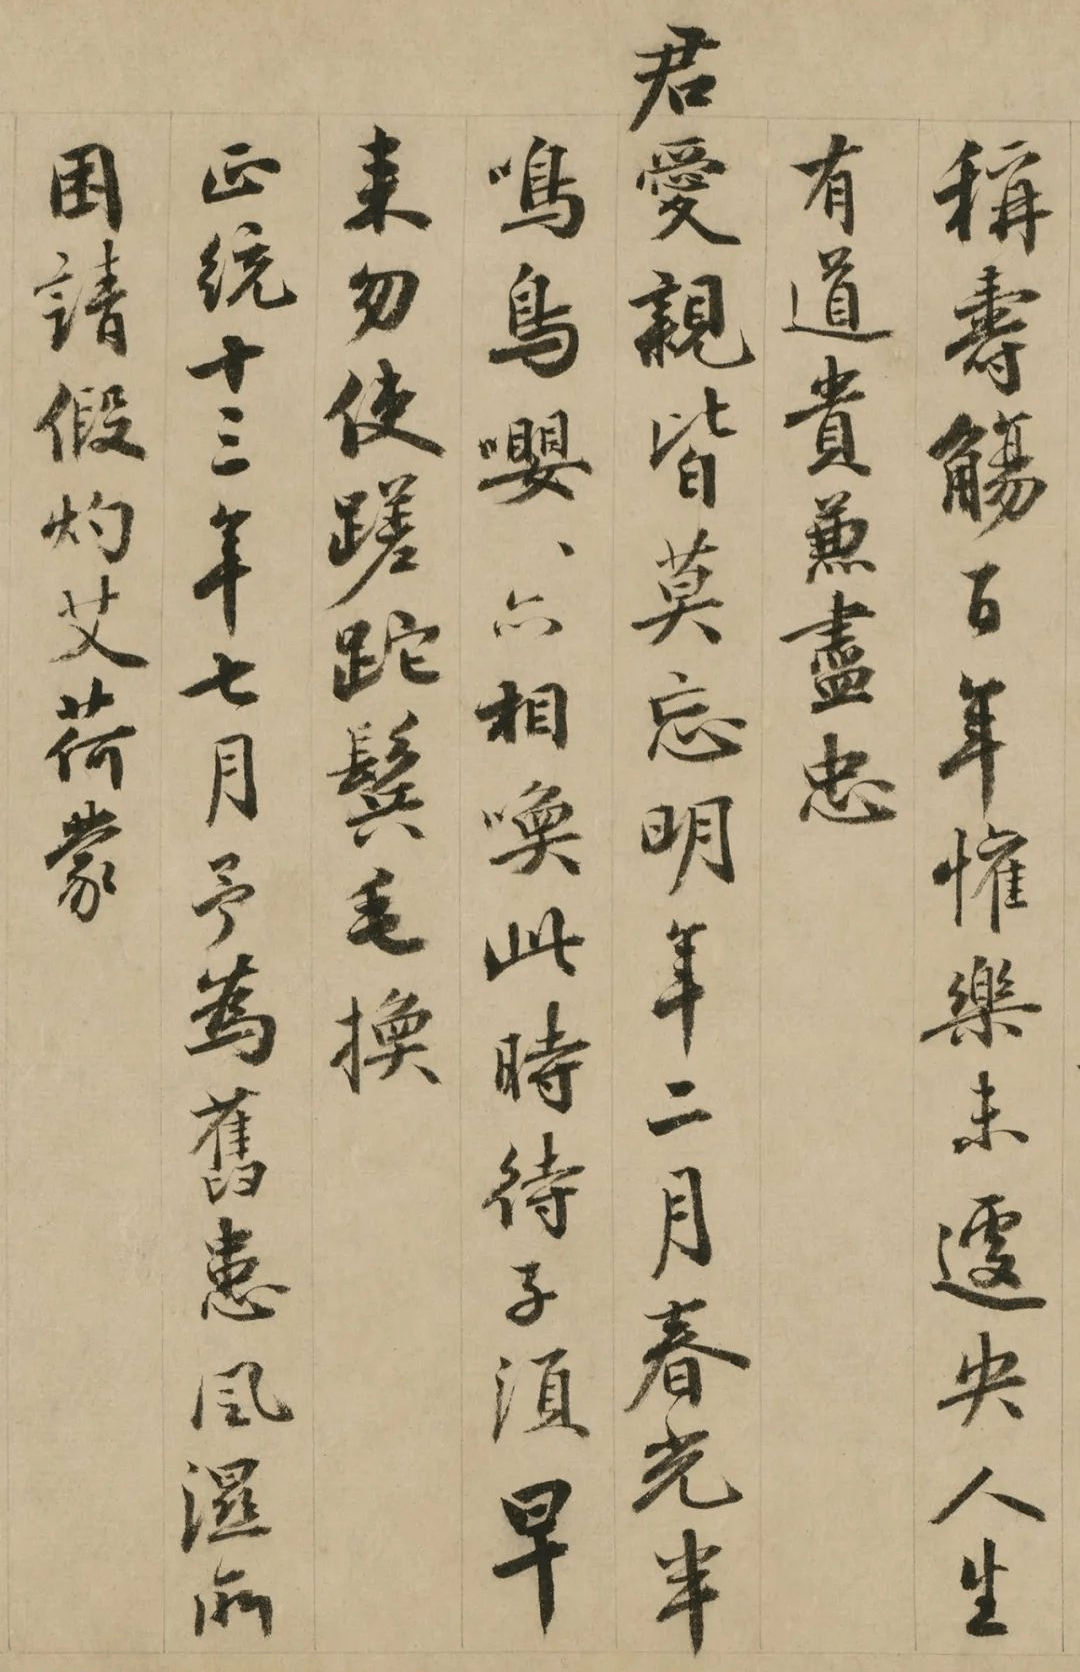 稱壽觴百年懽樂未遽央人生
有道貴兼盡忠
君愛親皆莫忘明年二月春光半
鳴鳥嚶、亦相喚此時待子須早
来勿使蹉跎鬂毛換
正統十三年七月予為舊患風濕所
困請假灼艾荷蒙